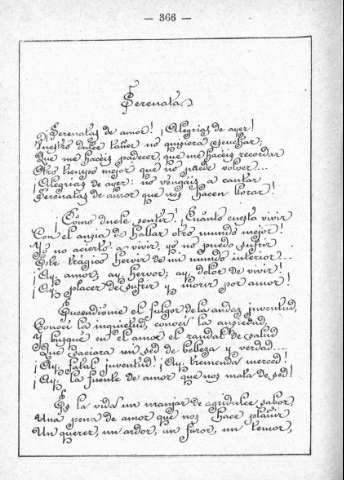 — 366 —
Serenata
¡Serenatas de amor! ¡Alegrías de ayer!
Vuestro dulce rumor no quisiera escuchar;
Que me hacéis padecer, que me hacéis recordar
Otro tiempo mejor que no puede volver...
¡Alegrías de ayer: no vengáis a cantar
Serenatas de amor que nos hacen llorar!
¡Cómo duele sentir! ¡Cuánto cuesta vivir
Con el ansia de hallar otro mundo mejor!
Yo no acierto a vivir, yo no puedo sufrir
Este trágico hervir de mi mundo interior...
¡Ay amor, ay hervor, ay dolor de vivir!
¡Ay placer de sufrir y morir por amor!
Encendióme el fulgor de la andaz juventud,
Conocí la inquietud, conocí la ansiedad,
Y busqué en el amor el raudal de salud
Que saciara mi sed de belleza y verdad...
¡Ay, fatal juventud! ¡Ay, tremenda merced!
¡Ay, la fuente de amor que nos mata de sed!
Es la vida un manjar de agridulce sabor,
Una pena de amor que nos hace plañir
Un querer, un ardor, un furor, un temor,